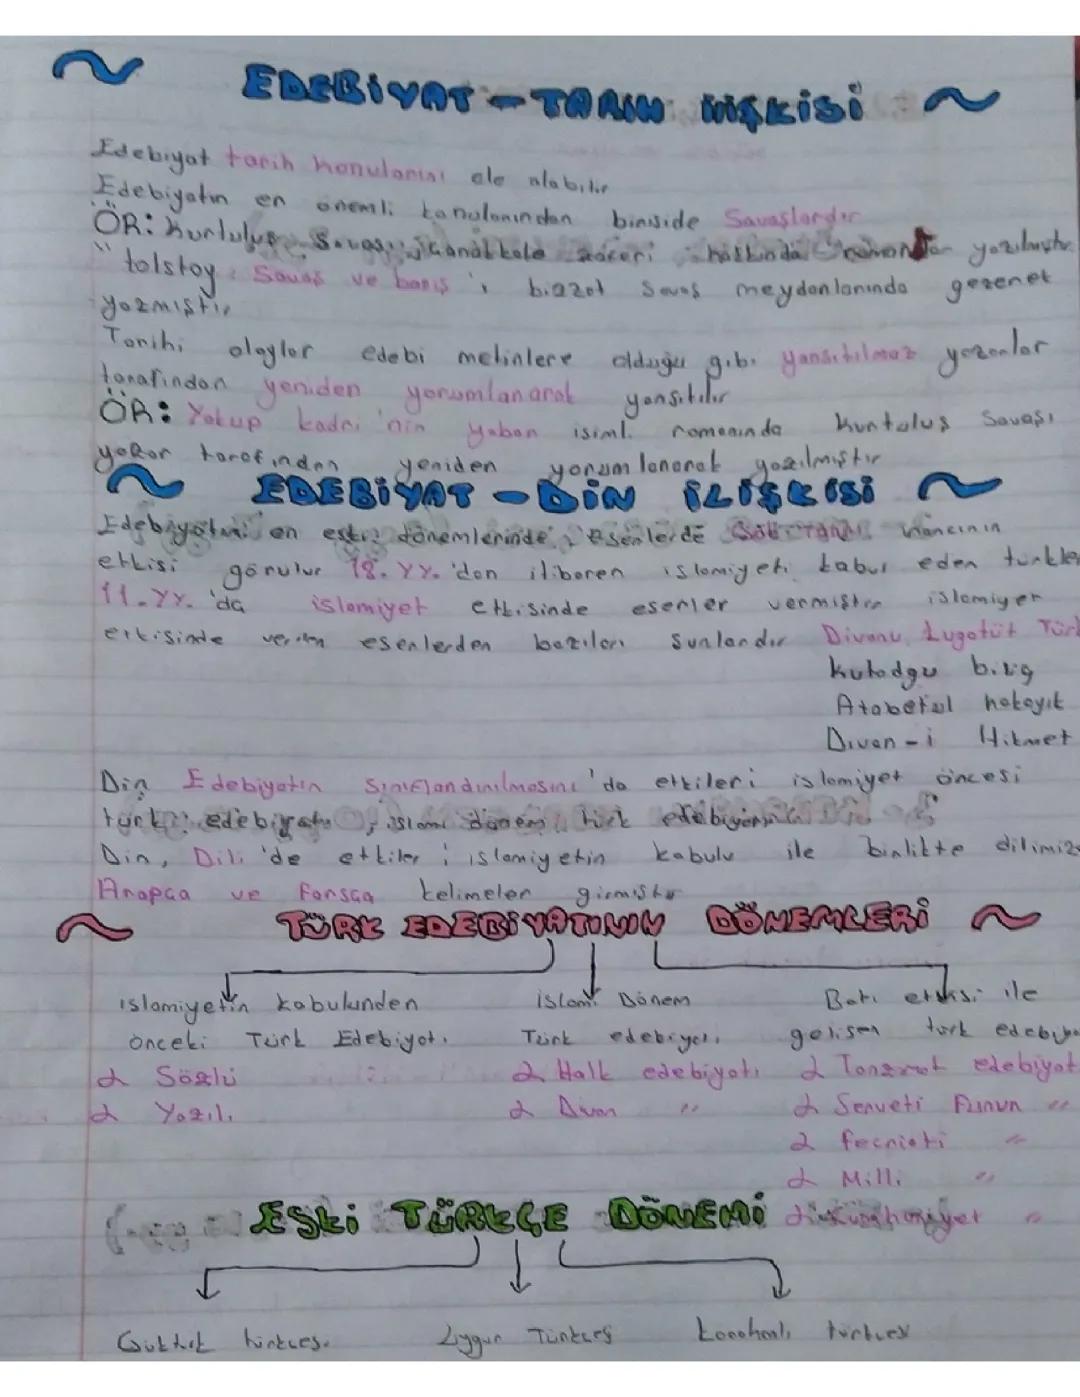 EDEBİYAT - TARİH İLİŞKİSİ
Edebiyat tarih konularını ele alabilir
Edebiyatın en önemli konularından biriside Savaşlardır
ÖR: Kurtuluş Savaşı, Çanakkale zaferi hakkında roman yazılmıştır
"tolstoy Savaş ve barış'ı bizzat savaş meydanlarında gezerek
yazmıştır
Tarihi olaylar edebi metinlere olduğu gibi yansıtılmaz yazarlar
tarafından yeniden yorumlanarak yansıtılır
ÖR: Yakup kadri'nin yaban isimli romanında kurtuluş savaşı
yazar tarafından yeniden yorumlanarak yazılmıştır
EDEBİYAT - DİN İLİŞKİSİ
Edebiyatın en eski dönemlerinde eserlerde Gök Tanrı inancının
etkisi görülür 18. yy.'dan itibaren islamiyeti kabul eden türkler
11. yy.'da islamiyet etkisinde eserler vermiştir islamiyet
etkisinde verilen eserlerden bazıları şunlardır Divanu Lugatüt Türk
kutadgu bilig
Atabetül hakayık
Divan-i Hikmet
Din Edebiyatın sınıflandırılmasını'da etkileri islamiyet öncesi
türk edebiyatı, islami dönem türk edebiyatı
Din, Dili'de etkiler islamiyetin kabulu ile birlikte dilimize
Arapça ve Farsça kelimeler girmiştir
TÜRK EDEBİYATININ DÖNEMLERİ
islamiyetin kabulunden islami Dönem Batı etkisi ile
önceki Türk Edebiyatı Türk edebiyatı gelişen türk edebiya
Sözlü Halk edebiyatı Tanzimat edebiyat
Yazılı Divan " Serveti Fünun "
fecriati "
Milli "
ESKİ TÜRKÇE DÖNEMİ Cumhuriyet "
Göktürk türkçesi Uygur Türkçesi karahanlı türkçesi